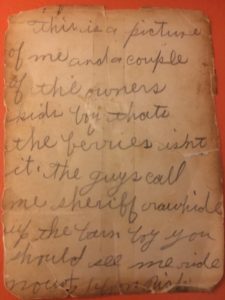 this is a picture
of me and a couple
of the owners
kids boy thats
the berries isnt
it. the guys call
me sheriff rawhide
up the barn boy you
should see me ride
now